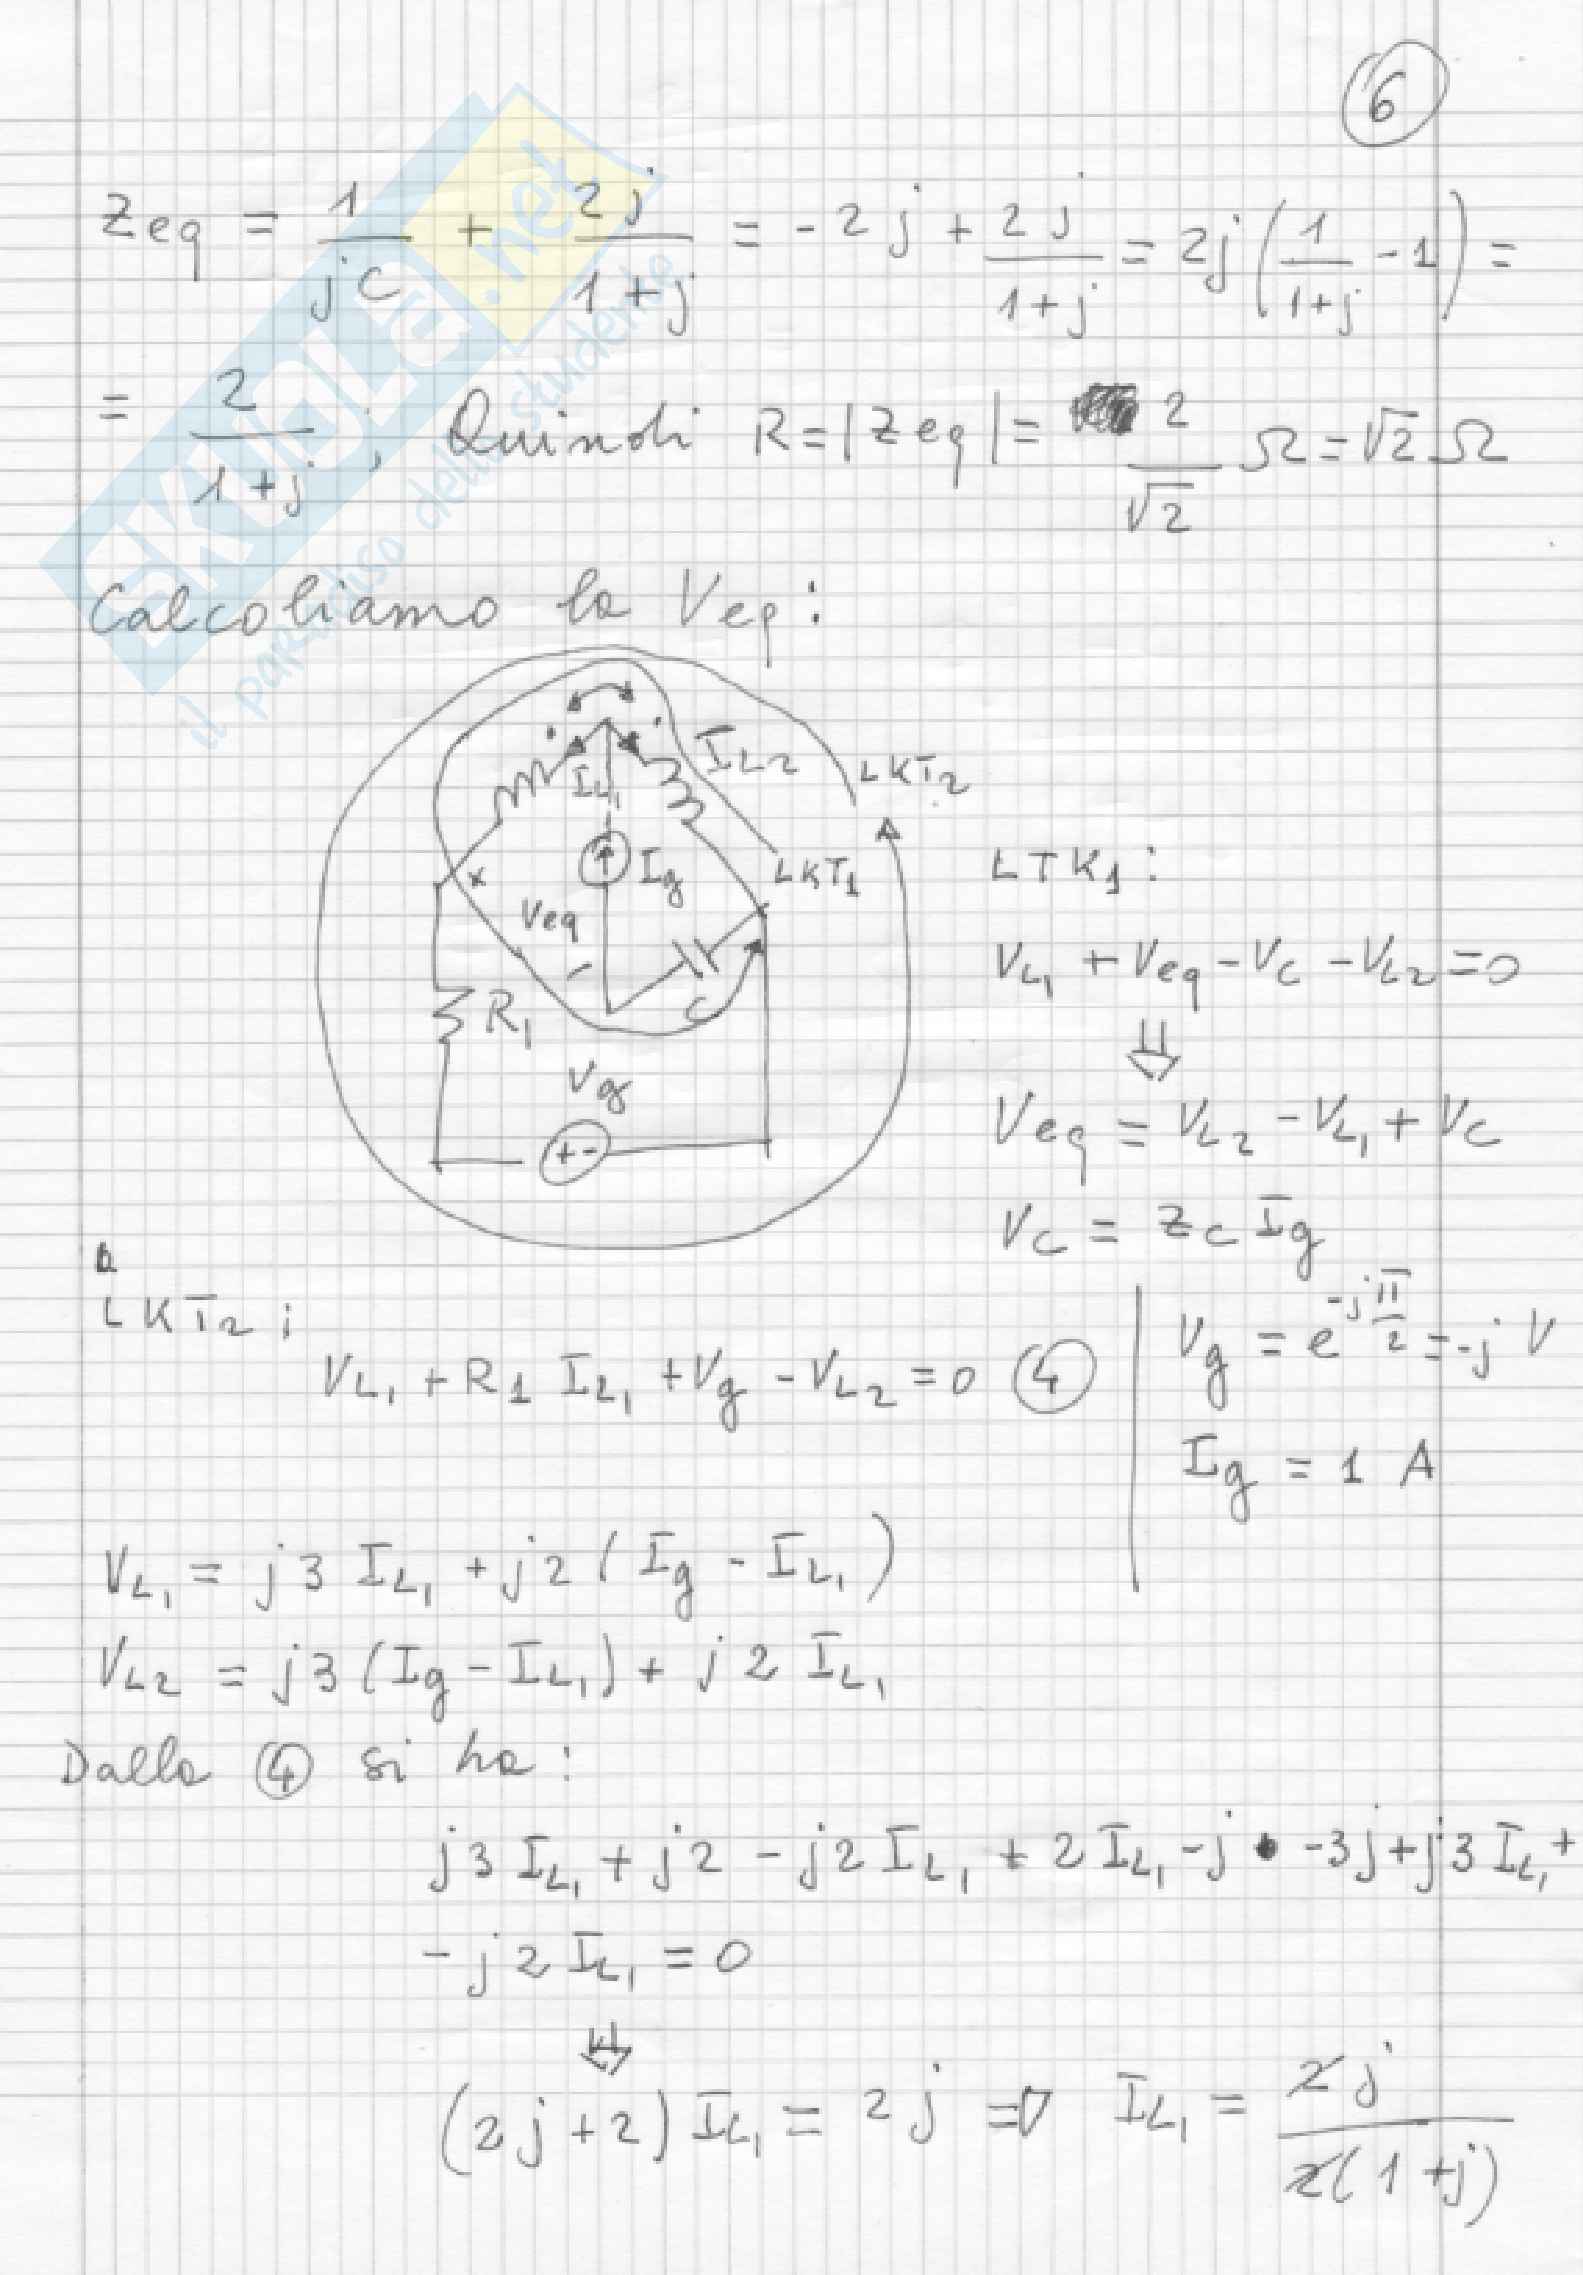 6
Zeq = 1/(jC) + 2j/(1+j) = -2j + 2j/(1+j) = 2j(1/(1+j) -1) =
= 2/(1+j) ; Quindi R=|Zeq|= 2/√2 Ω=√2 Ω
Calcoliamo la Veq:
IL2
IL1
LKT2
Ig
LKT1
x
Veq
-
C
R1
Vg
+-
LTK1:
VL1 + Veq - VC - VL2 = 0
⇓
Veq = VL2 - VL1 + VC
VC = ZC Ig
LKT2 :
VL1 + R1 IL1 + Vg - VL2 = 0 ④
Vg = e^(-jπ/2) = -j V
Ig = 1 A
VL1 = j3 IL1 + j2 (Ig - IL1)
VL2 = j3 (Ig - IL1) + j2 IL1
Dalla ④ si ha:
j3 IL1 + j2 - j2 IL1 + 2 IL1 -j -3j + j3 IL1 +
- j2 IL1 = 0
⇓
(2j+2) IL1 = 2j ⇒ IL1 = 2j/(2(1+j))
SKUOLA.net
il paradiso dello studente